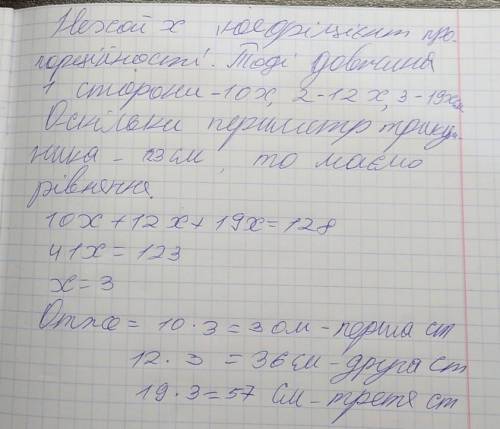 Нехай х коефіцієнт про-
порційності. Тоді довжина
1 сторони -10х, 2-12х, 3-19х
Оскільки периметр трику
ника - 123 см, то маємо
рівняння.
10х+12х+19х=128
41х=123
х=3
Отже = 10·3=30м-перша ст
12·3=36см-друга ст
19·3=57 см-третя ст